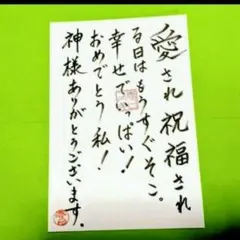 愛され祝福され
る日はもうすぐそこ。
幸せでいっぱい!
おめでとう私!
神様ありがとうございます。